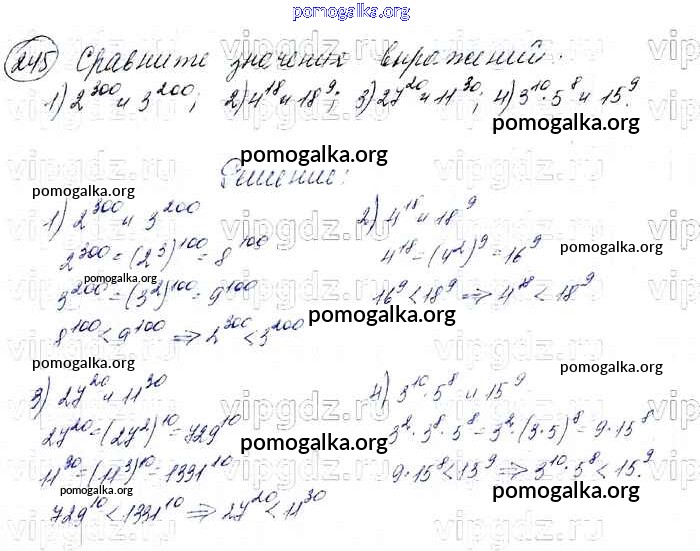 pomogalka.org
245 Сравните значения выражений.
1) 2^300 и 3^200; 2) 4^18 и 18^9; 3) 27^20 и 11^30; 4) 3^10·5^8 и 15^9.
pomogalka.org
Решение:
pomogalka.org
1) 2^300 и 3^200
2^300=(2^3)^100=8^100
pomogalka.org
3^200=(3^2)^100=9^100
8^100<9^100 ⇒ 2^300<3^200
2) 4^18 и 18^9
4^18=(4^2)^9=16^9
pomogalka.org
16^9<18^9 ⇒ 4^18<18^9
pomogalka.org
3) 27^20 и 11^30
27^20=(27^2)^10=729^10
pomogalka.org
11^30=(11^3)^10=1331^10
pomogalka.org
729^10<1331^10 ⇒ 27^20<11^30
pomogalka.org
4) 3^10·5^8 и 15^9
3^2·3^8·5^8=3^2·(3·5)^8=9·15^8
9·15^8<15^9 ⇒ 3^10·5^8<15^9
pomogalka.org
vipgdz.ru